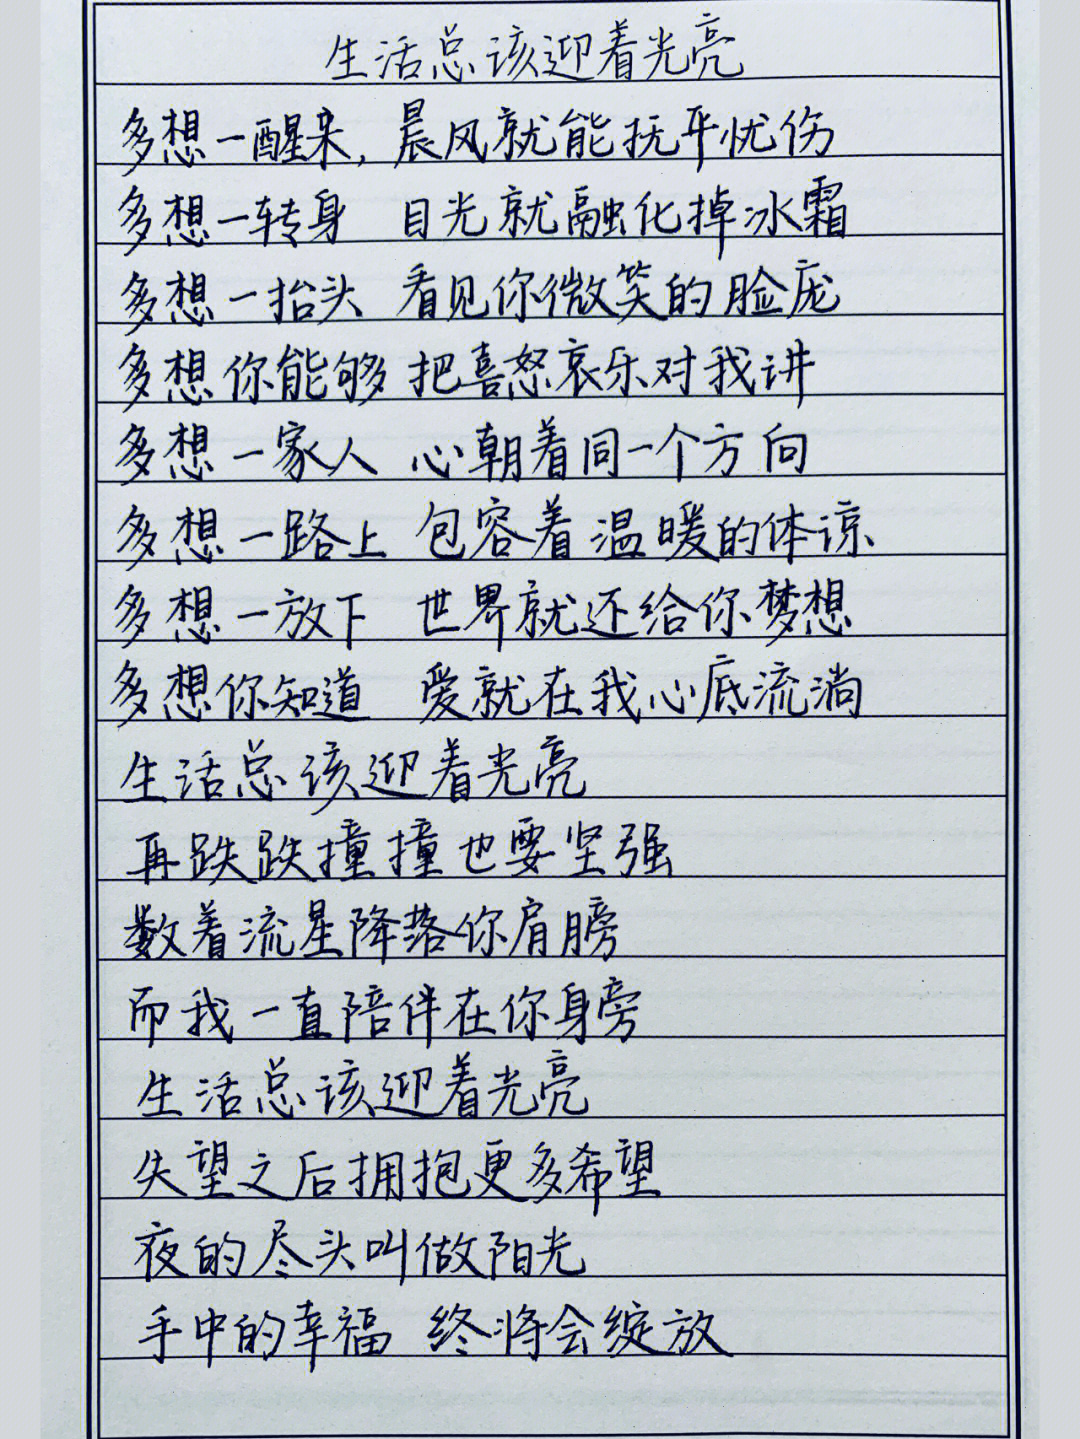 生活总该迎着光亮
多想一醒来，晨风就能抚平忧伤
多想一转身 目光就融化掉冰霜
多想一抬头 看见你微笑的脸庞
多想你能够 把喜怒哀乐对我讲
多想一家人 心朝着同一个方向
多想一路上 包容着温暖的体谅
多想一放下 世界就还给你梦想
多想你知道 爱就在我心底流淌
生活总该迎着光亮
再跌跌撞撞也要坚强
数着流星降落你肩膀
而我一直陪伴在你身旁
生活总该迎着光亮
失望之后拥抱更多希望
夜的尽头叫做阳光
手中的幸福 终将会绽放